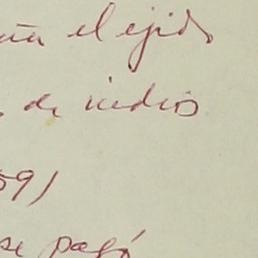 el ejido
de indios
59)
se pagó